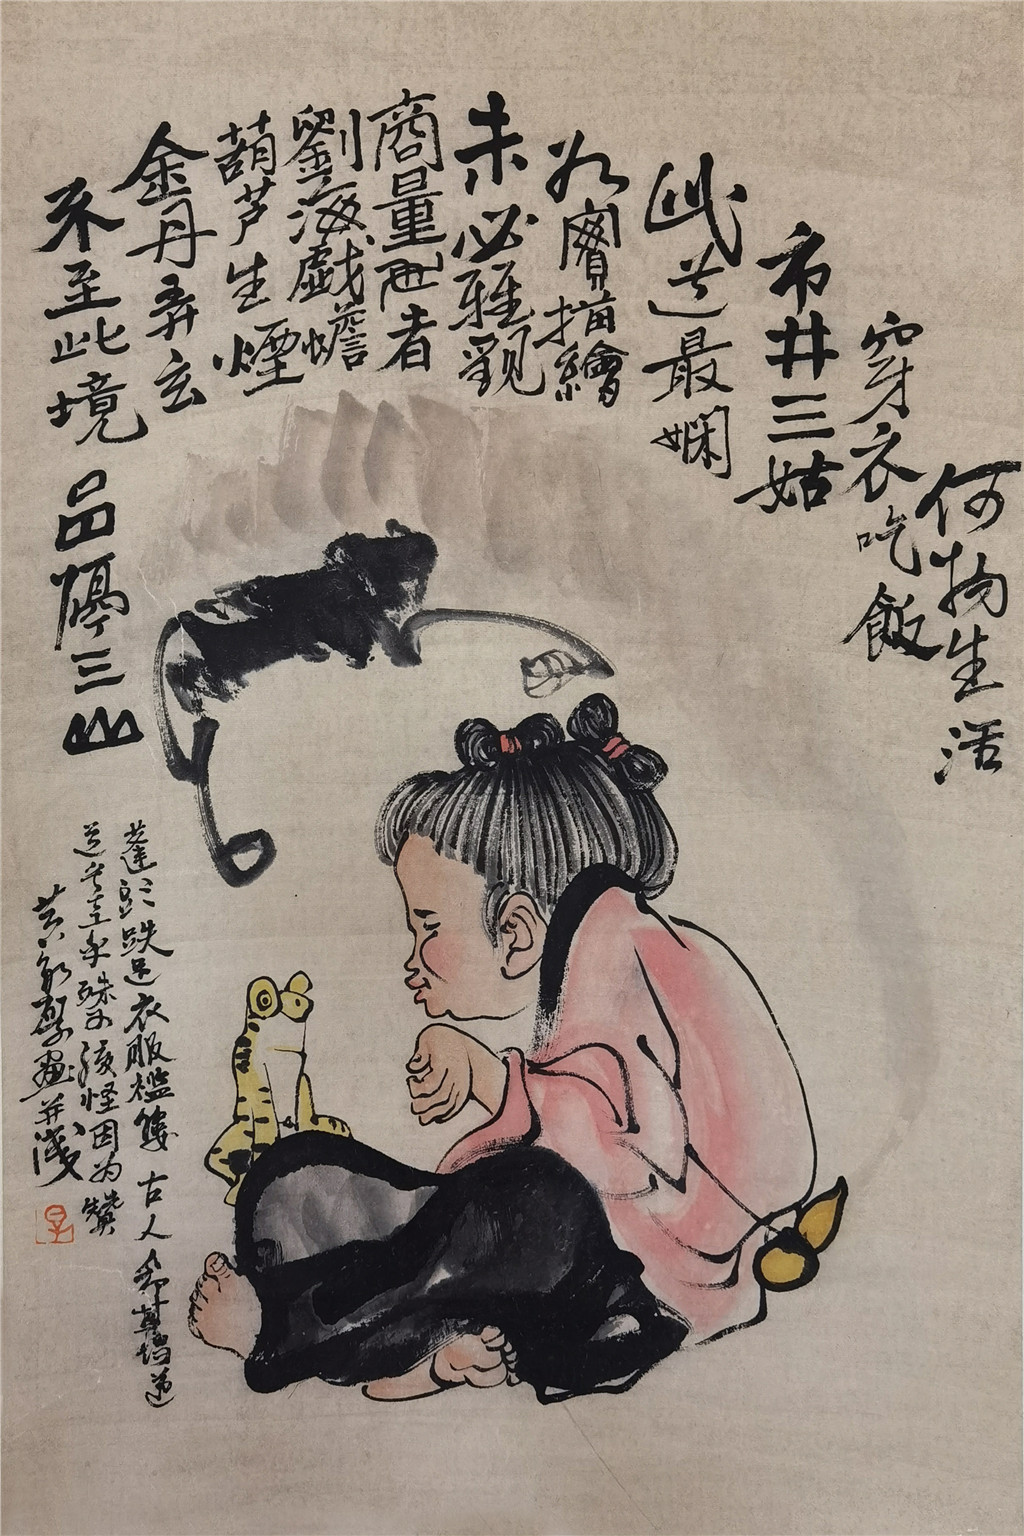 何物生活
穿衣吃飯
市井三姑
此道最嫻
如實描繪
未必雅觀
商量再者
劉海戲蟾
葫芦生煙
金丹弄玄
不至此境
呂
三山
蓬頭跣足衣服襤褸 古人
道
孩怪因为贊
黃
畫并